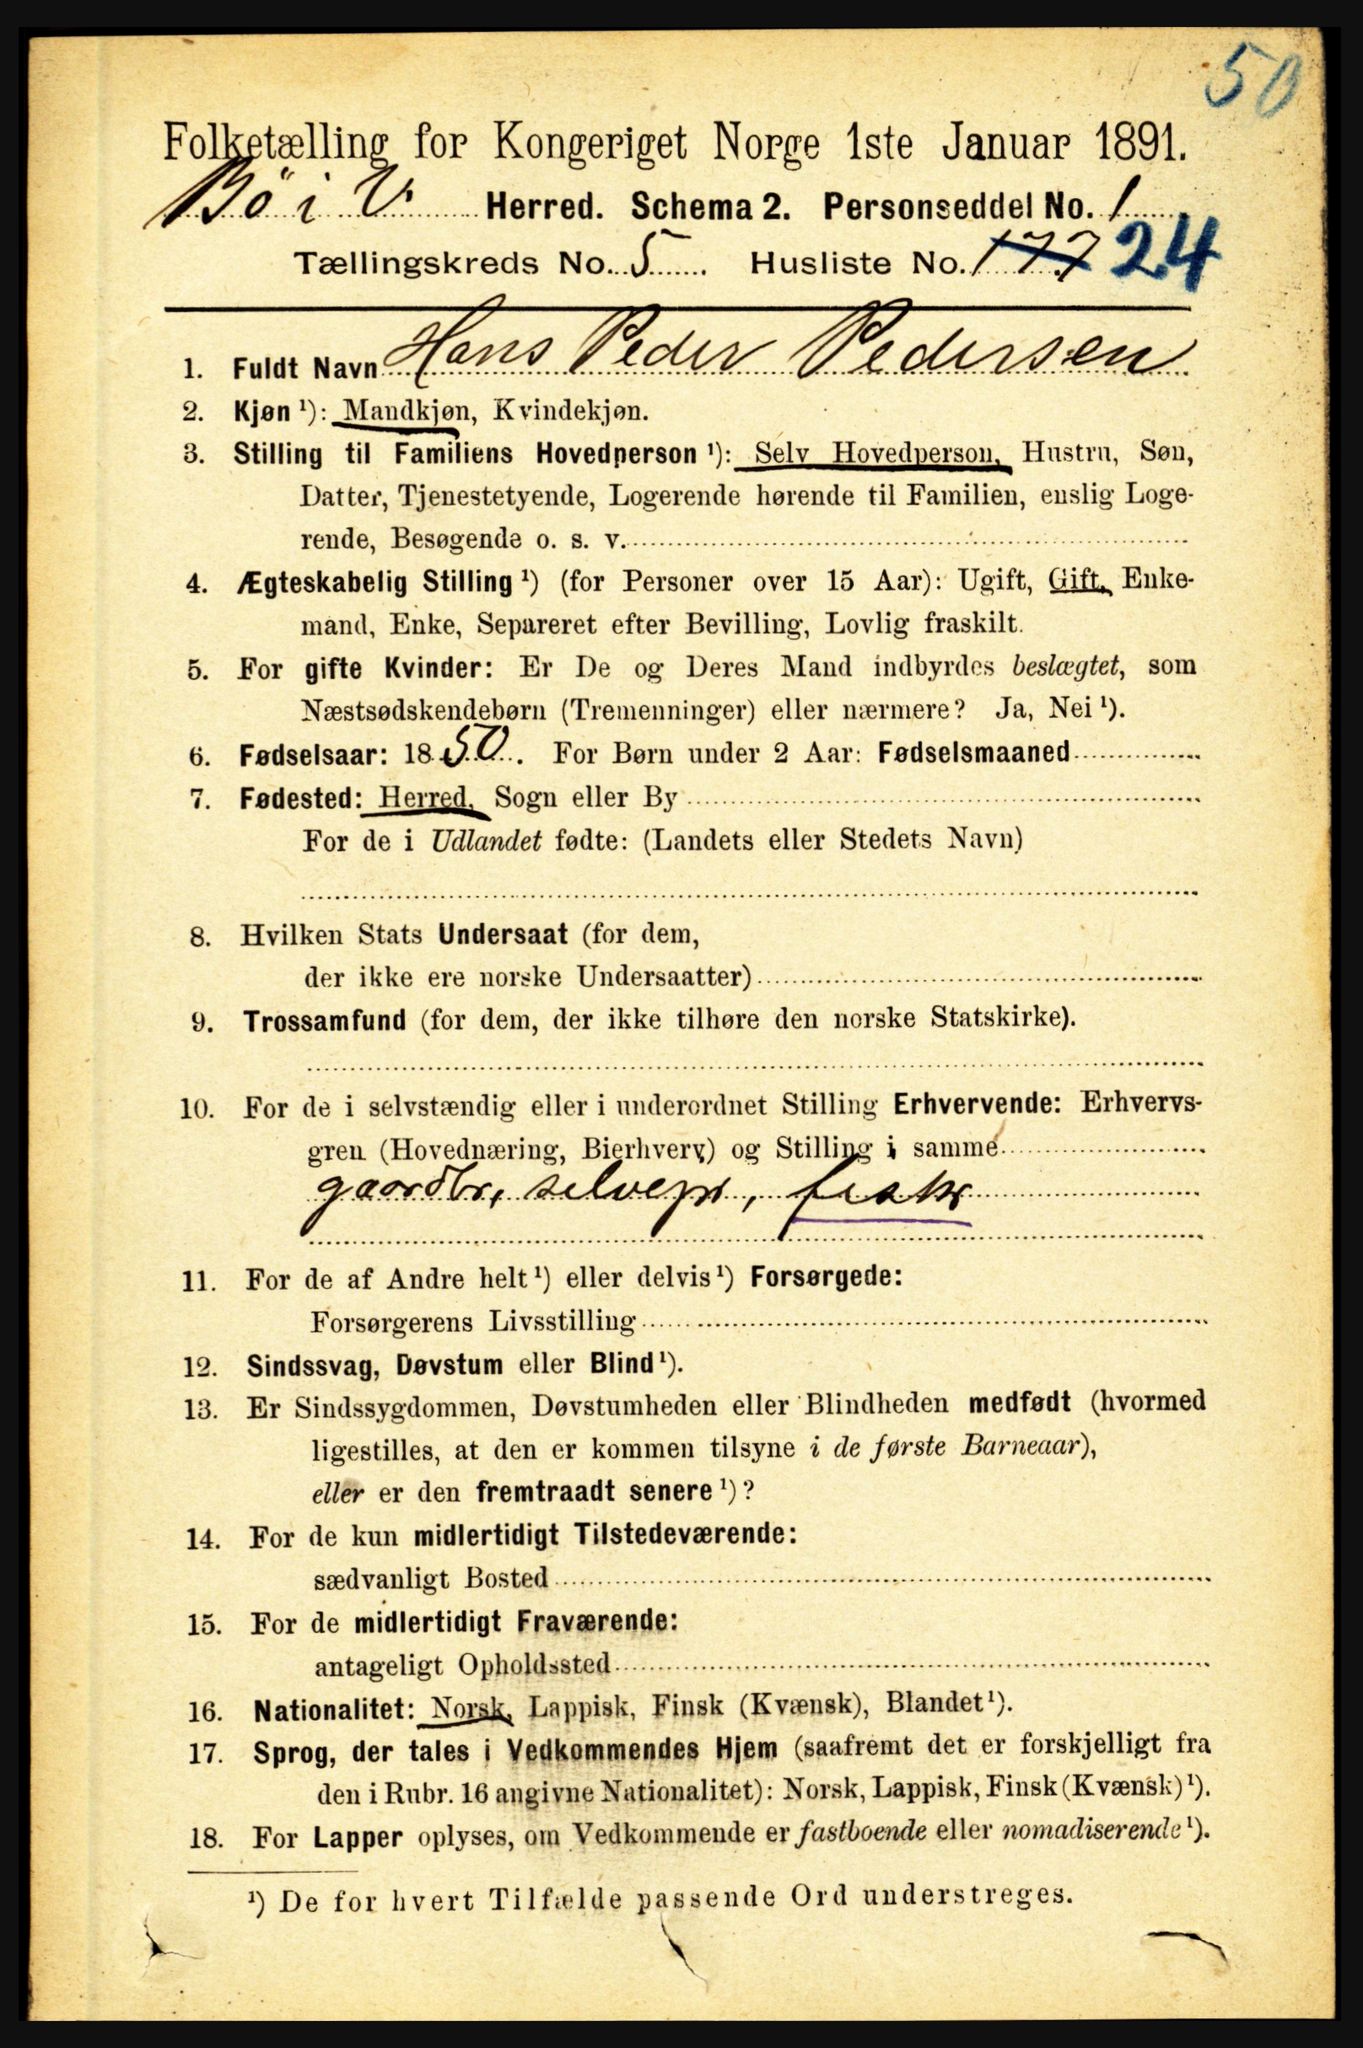 50
Folketælling for Kongeriget Norge 1ste Januar 1891.
Bö i V. Herred. Schema 2. Personseddel No. 1
Tællingskreds No. 5 Husliste No. 177 24
1. Fuldt Navn Hans Peder Pedersen
2. Kjøn ¹): Mandkjøn, Kvindekjøn.
3. Stilling til Familiens Hovedperson ¹): Selv Hovedperson, Hustru, Søn,
Datter, Tjenestetyende, Logerende hørende til Familien, enslig Loge-
rende, Besøgende o. s. v.
4. Ægteskabelig Stilling ¹) (for Personer over 15 Aar): Ugift, Gift, Enke-
mand, Enke, Separeret efter Bevilling, Lovlig fraskilt.
5. For gifte Kvinder: Er De og Deres Mand indbyrdes beslægtet, som
Næstsødskendebørn (Tremenninger) eller nærmere? Ja, Nei ¹).
6. Fødselsaar: 1850. For Børn under 2 Aar: Fødselsmaaned
7. Fødested: Herred, Sogn eller By
For de i Udlandet fødte: (Landets eller Stedets Navn)
8. Hvilken Stats Undersaat (for dem,
der ikke ere norske Undersaatter)
9. Trossamfund (for dem, der ikke tilhøre den norske Statskirke).
10. For de i selvstændig eller i underordnet Stilling Erhvervende: Erhvervs-
gren (Hovednæring, Bierhverv) og Stilling i samme
gaardbr, selveier, fisker
11. For de af Andre helt ¹) eller delvis ¹) Forsørgede:
Forsørgerens Livsstilling
12. Sindssvag, Døvstum eller Blind ¹).
13. Er Sindssygdommen, Døvstumheden eller Blindheden medfødt (hvormed
ligestilles, at den er kommen tilsyne i de første Barneaar),
eller er den fremtraadt senere ¹)?
14. For de kun midlertidigt Tilstedeværende:
sædvanligt Bosted
15. For de midlertidigt Fraværende:
antageligt Opholdssted
16. Nationalitet: Norsk, Lappisk, Finsk (Kvænsk), Blandet ¹).
17. Sprog, der tales i Vedkommendes Hjem (saafremt det er forskjelligt fra
den i Rubr. 16 angivne Nationalitet): Norsk, Lappisk, Finsk (Kvænsk) ¹).
18. For Lapper oplyses, om Vedkommende er fastboende eller nomadiserende ¹).
¹) De for hvert Tilfælde passende Ord understreges.